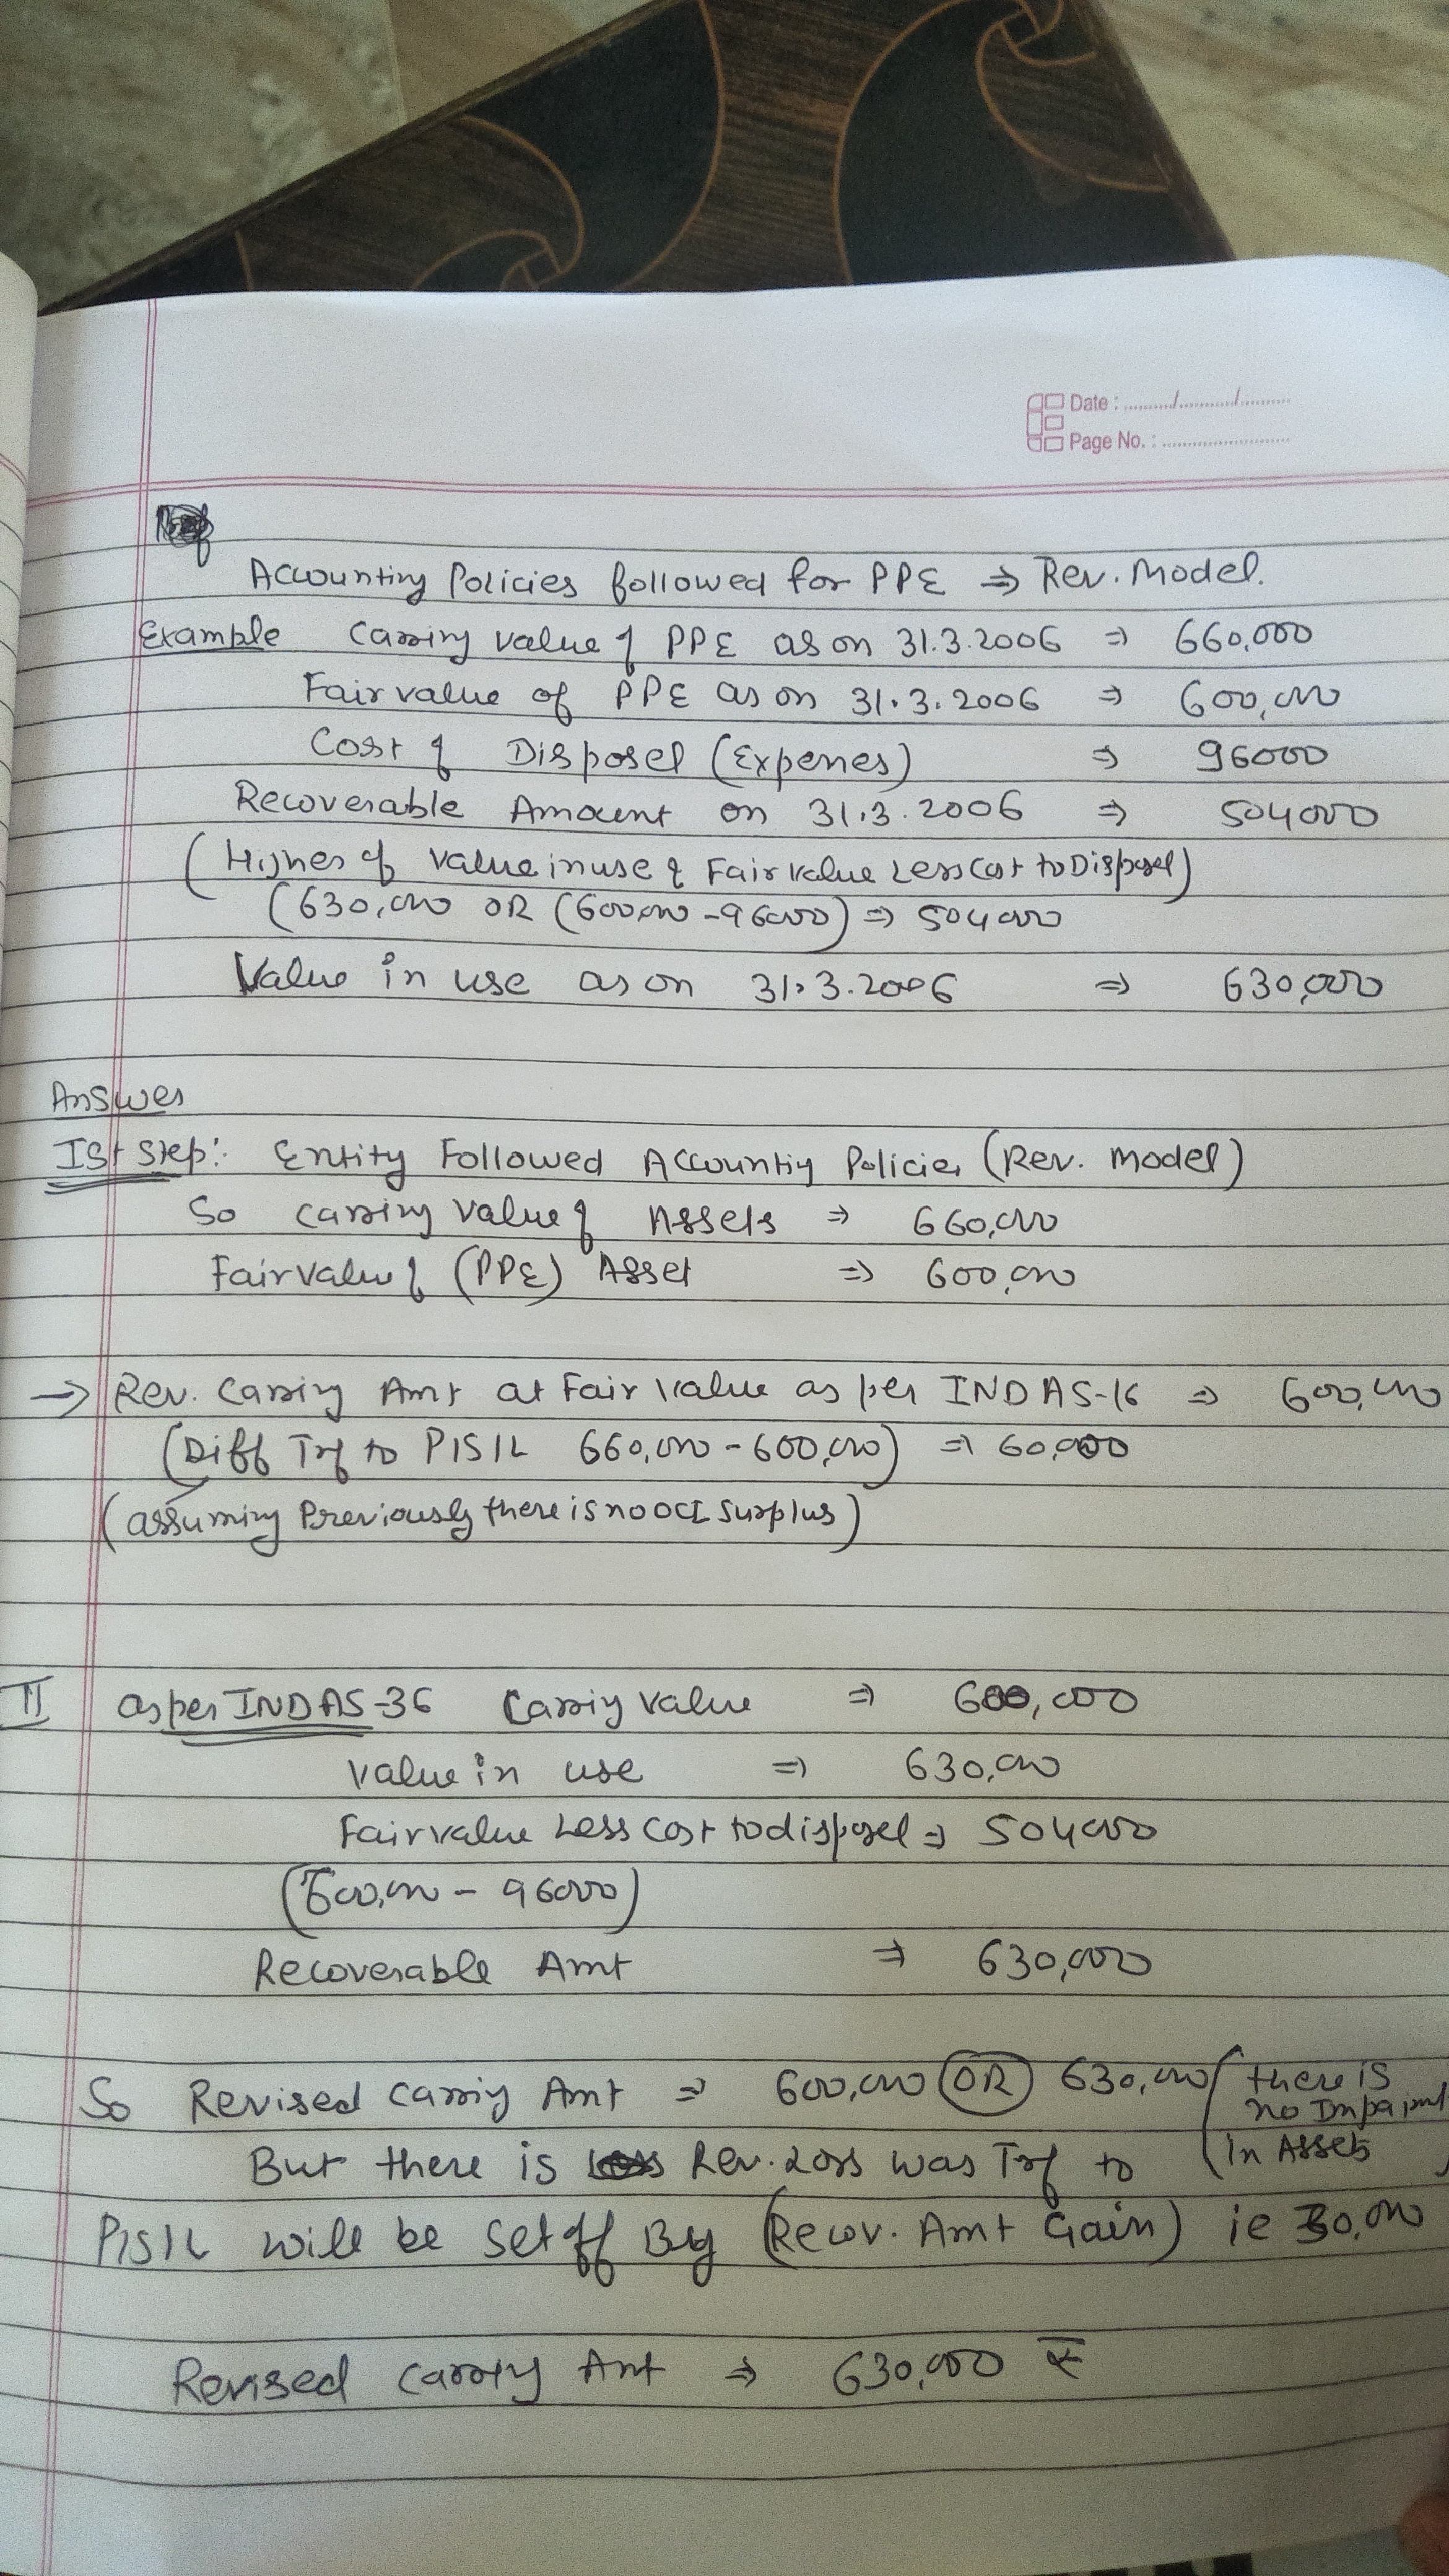 Date : ........../.........../..........
Page No. : ............................
Accounting Policies followed for PPE ⇒ Rev. Model.
Example Carring value of PPE as on 31.3.2006 ⇒ 660,000
Fair value of PPE as on 31.3.2006 ⇒ 600,000
Cost of Disposel (Expenes) ⇒ 96000
Recoverable Amount on 31.3.2006 ⇒ 504000
(Higher of value in use & Fair value Less cost to Disposel)
(630,000 OR (600,000 - 96000) ⇒ 504000
Value in use as on 31.3.2006 ⇒ 630,000
Answer
Ist Step: Entity Followed Accounting Policies (Rev. model)
So Carring value of Assets ⇒ 660,000
Fair value of (PPE) Asset ⇒ 600,000
→ Rev. Carring Amt at Fair value as per INDAS-16 ⇒ 600,000
(Diff Trf to P/S/L 660,000 - 600,000) ⇒ 60,000
(assuming Previously there is no OCI Surplus)
II as per INDAS-36 Carring value ⇒ 600,000
value in use ⇒ 630,000
Fair value Less cost to disposel ⇒ 504000
(600,000 - 96000)
Recoverable Amt ⇒ 630,000
So Revised Carring Amt ⇒ 600,000 OR 630,000 (there is
no Impairmt
But there is Rev. Loss was Trf to (In Assets)
P/S/L will be set off By (Recov. Amt Gain) ie 30,000
Revised Carring Amt ⇒ 630,000 ₹